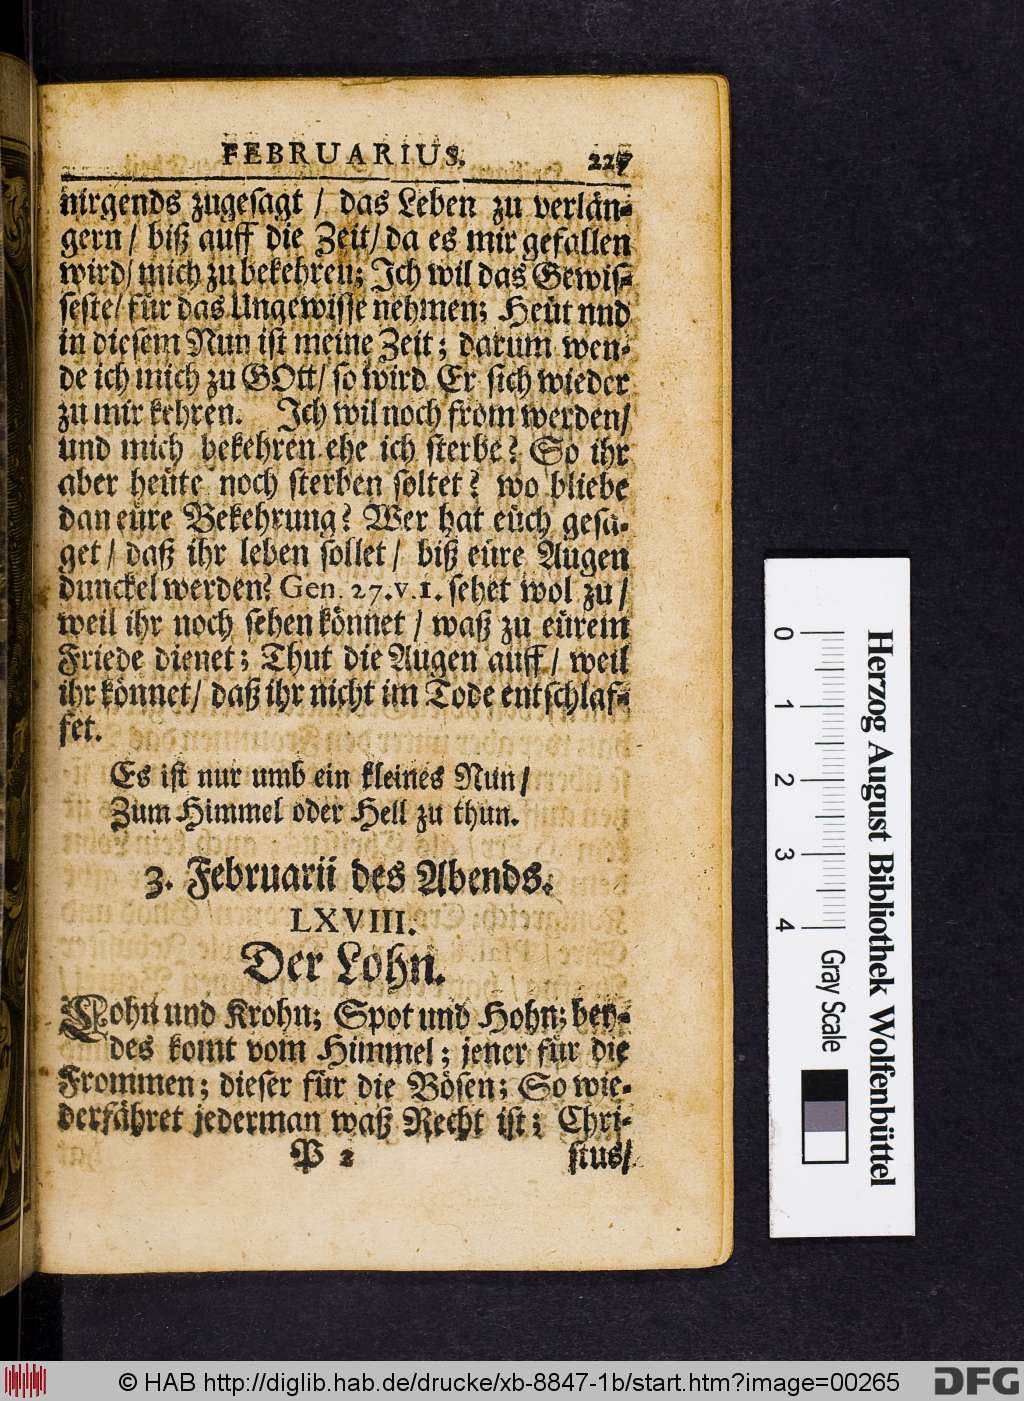 FEBRUARIUS. 227
nirgends zugesagt / das Leben zu verlän-
gern / biß auff die Zeit / da es mir gefallen
wird / mich zu bekehren; Ich wil das Gewis-
seste / für das Ungewisse nehmen; Heüt nnd
in diesem Nun ist meine Zeit; darum wen-
de ich mich zu GOtt / so wird Er sich wieder
zu mir kehren. Ich wil noch from werden /
und mich bekehren ehe ich sterbe? So ihr
aber heüte noch sterben soltet? wo bliebe
dan eüre Bekehrung? Wer hat eüch gesa-
get / daß ihr leben sollet / biß eüre Augen
dunckel werden? Gen. 27. v. 1. sehet wol zu /
weil ihr noch sehen könnet / waß zu eürem
Friede dienet; Thut die Augen auff / weil
ihr könnet / daß ihr nicht im Tode entschlaf-
fet.
Es ist nur umb ein kleines Nun /
Zum Himmel oder Hell zu thun.
3. Februarii des Abends.
LXVIII.
Der Lohn.
Lohn und Krohn; Spot und Hohn; bey-
des komt vom Himmel; jener für die
Frommen; dieser für die Bösen; So wie-
derfähret jederman waß Recht ist; Chri-
P 2 stus /
0 1 2 3 4
Gray Scale
Herzog August Bibliothek Wolfenbüttel
© HAB http://diglib.hab.de/drucke/xb-8847-1b/start.htm?image=00265
DFG